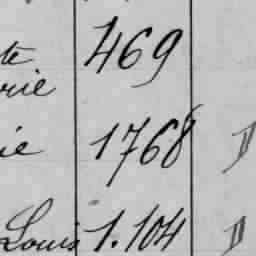 te 469
rie
ie 1768
Louis 1.104